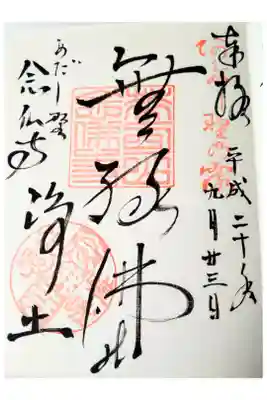 奉拝
平成二十年
九月廿三日
無縁佛
浄土
あだし野
念仏寺